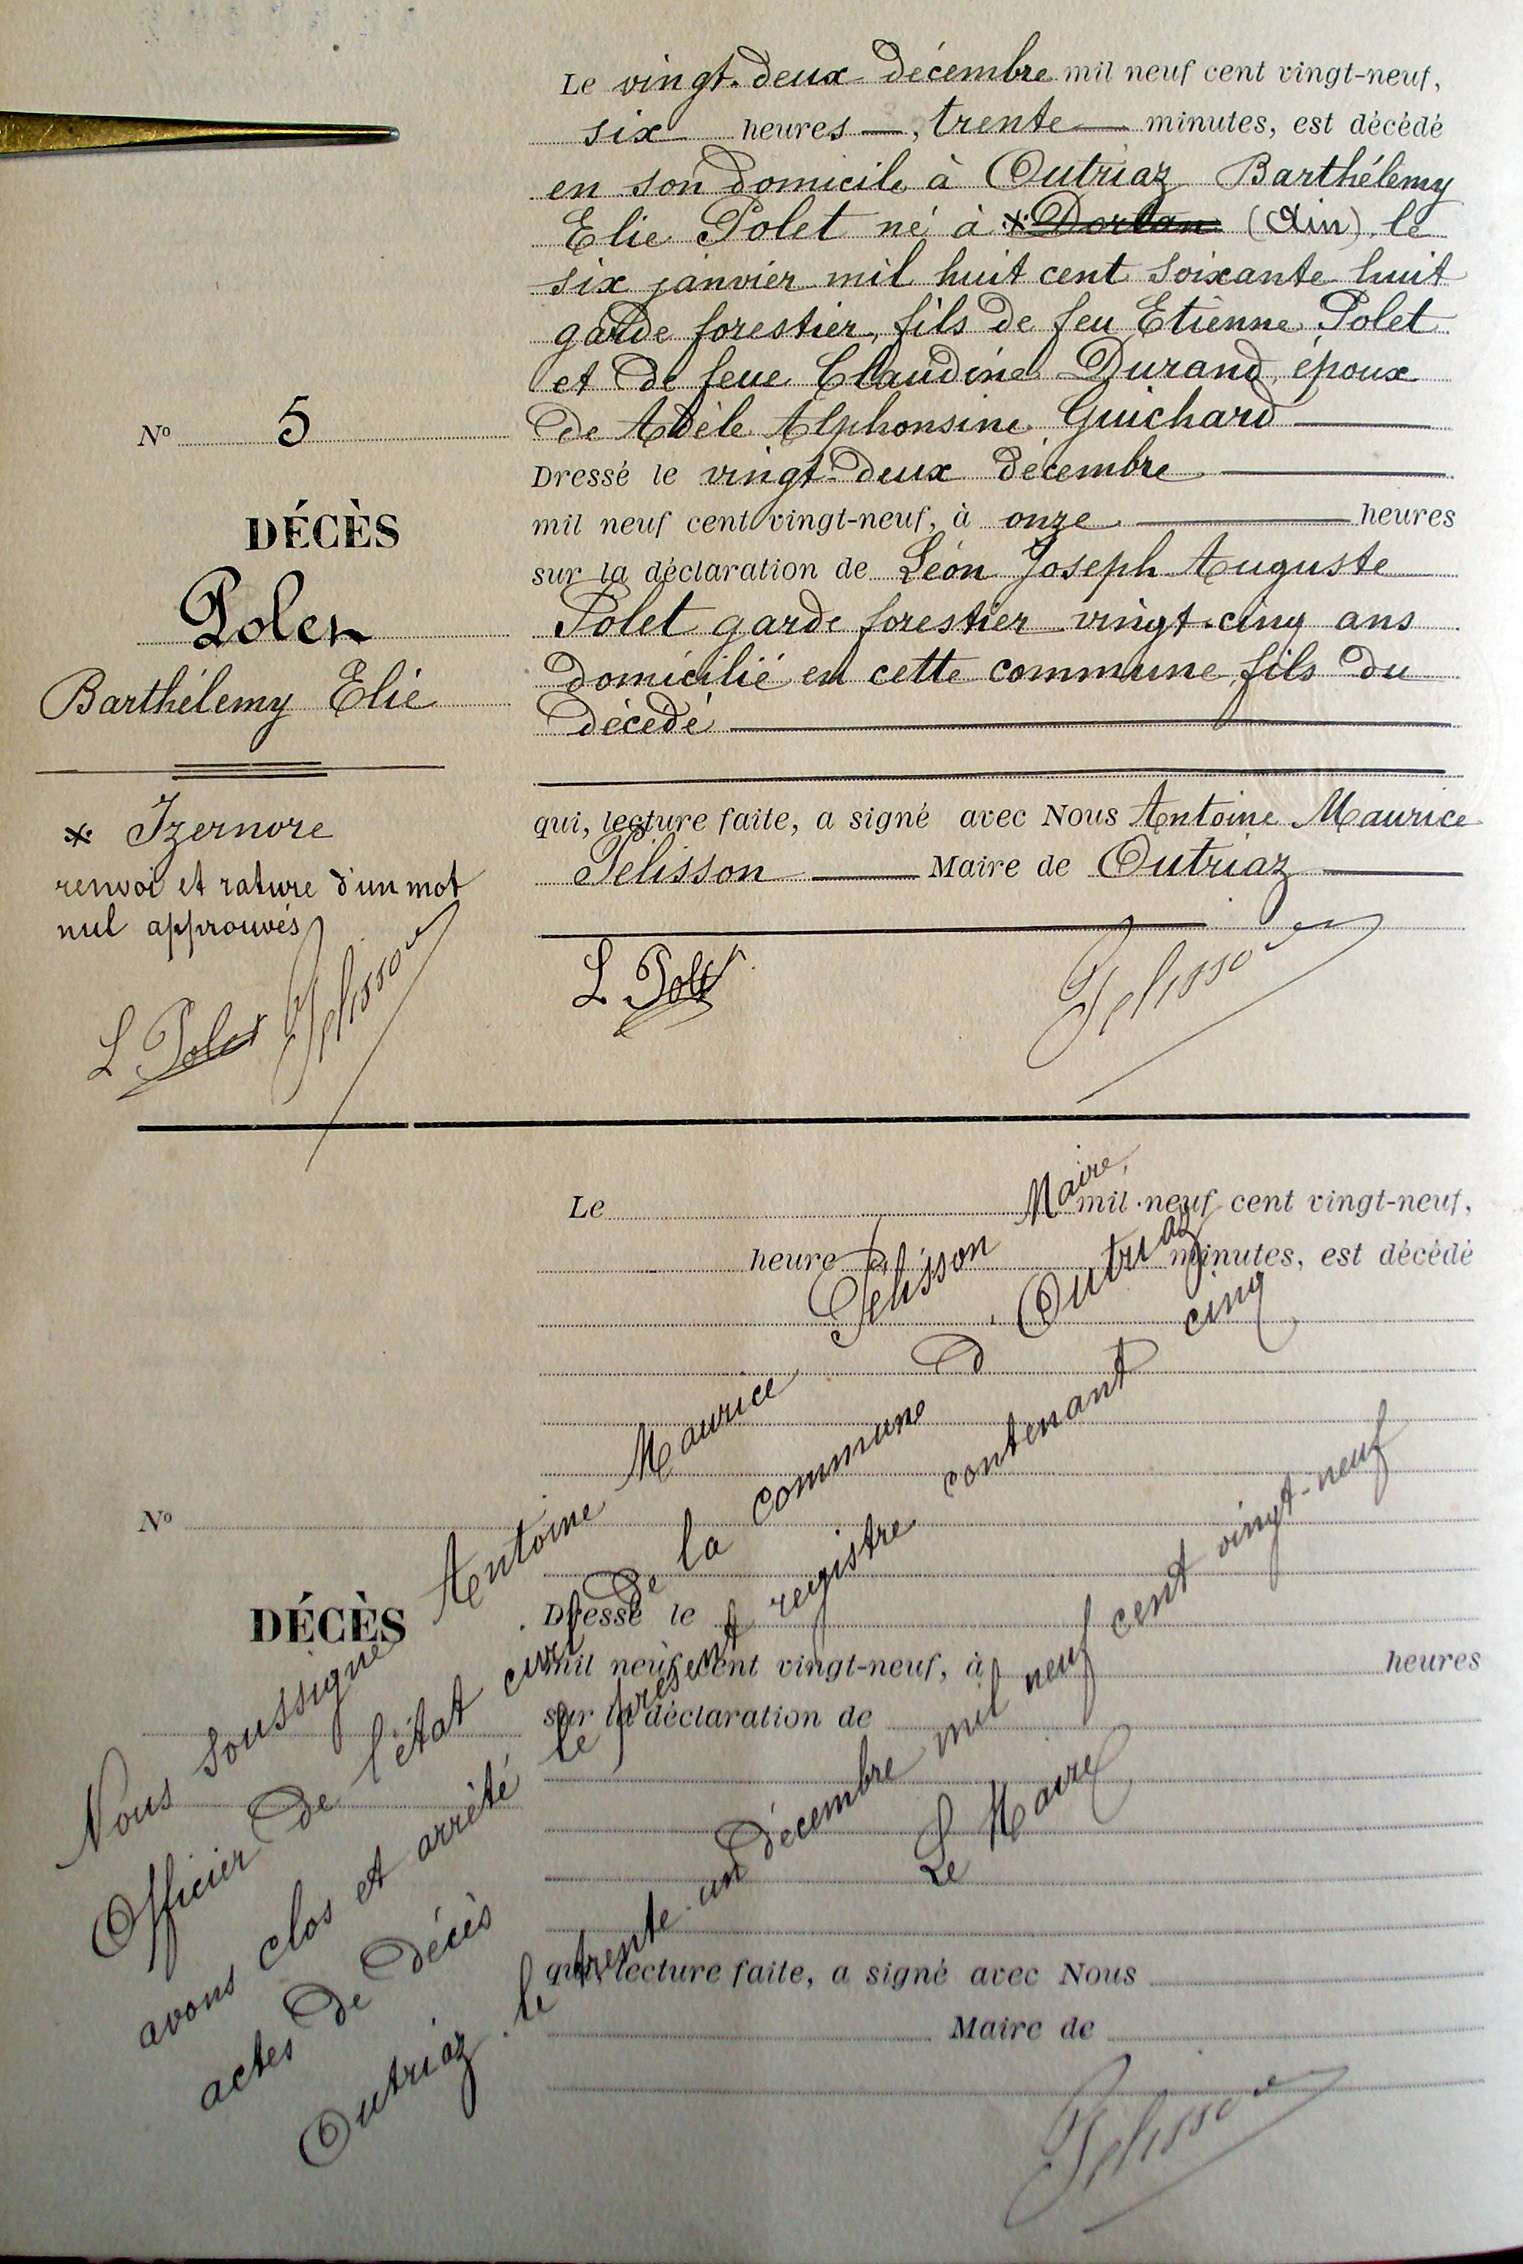 Le vingt-deux décembre mil neuf cent vingt-neuf,
six heures, trente minutes, est décédé
en son domicile à Outriaz Barthélemy
Elie Polet né à * Dortan (Ain) le
six janvier mil huit cent soixante huit
garde forestier, fils de feu Etienne Polet
et de feue Claudine Durand, époux
de Adèle Alphonsine Guichard
Dressé le vingt-deux décembre
mil neuf cent vingt-neuf, à onze heures
sur la déclaration de Léon Joseph Auguste
Polet garde forestier vingt-cinq ans
domicilié en cette commune, fils du
décédé
qui, lecture faite, a signé avec Nous Antoine Maurice
Pélisson Maire de Outriaz
L Polet
Pelisson
N° 5
DÉCÈS
Polet
Barthélemy Elie
* Izernore
renvoi et rature d'un mot
nul approuvés
L Polet Pelisson
Le mil neuf cent vingt-neuf,
heure minutes, est décédé
N°
DÉCÈS
Dressé le
mil neuf cent vingt-neuf, à heures
sur la déclaration de
qui, lecture faite, a signé avec Nous
Maire de
Nous soussigné Antoine Maurice Pélisson Maire,
Officier de l'état civil de la commune d'Outriaz
avons clos et arrêté le présent registre contenant cinq
actes de décès
Outriaz le trente-un décembre mil neuf cent vingt-neuf
Le Maire
Pelisson